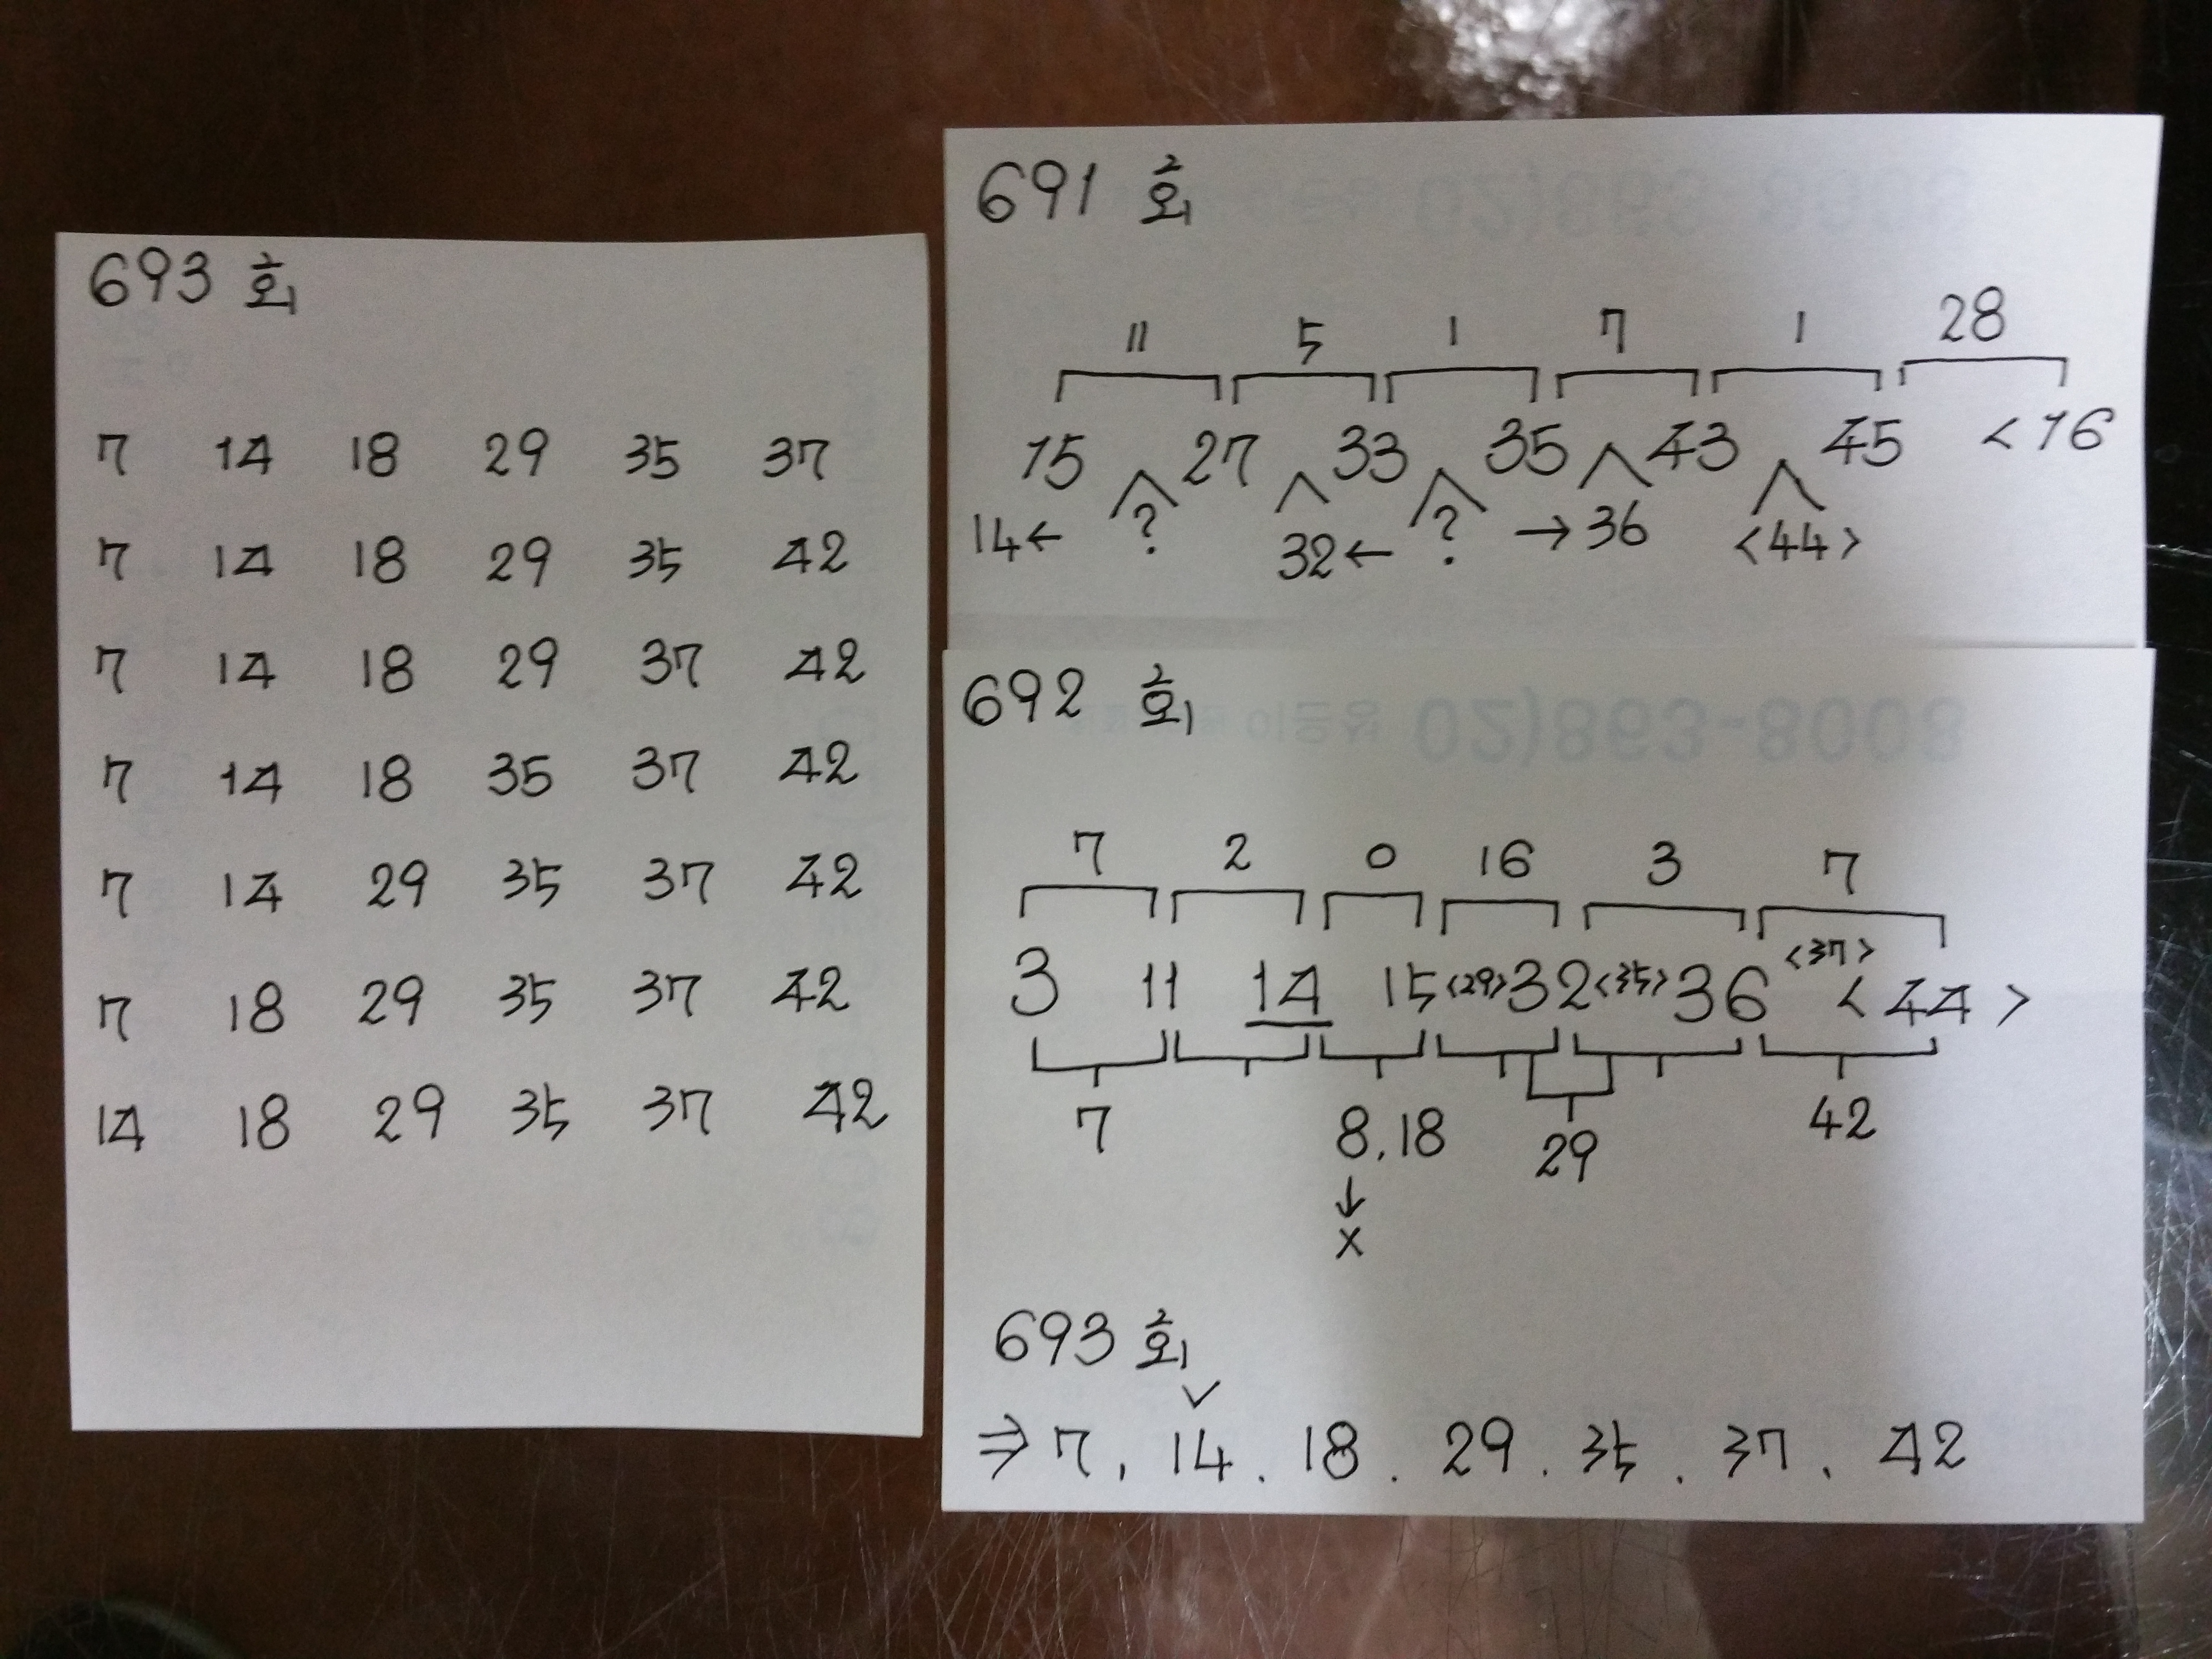 693 회
7 14 18 29 35 37
7 14 18 29 35 42
7 14 18 29 37 42
7 14 18 35 37 42
7 14 29 35 37 42
7 18 29 35 37 42
14 18 29 35 37 42
691 회
11 5 1 7 1 28
15 27 33 35 43 45 <16
14← ? 32← ? →36 <44>
692 회
02)863-8008
7 2 0 16 3 7
3 11 14 15 <29> 32 <35> 36 <37> <44>
7 8,18 29 42
↓
x
693 회
✓
⇒ 7, 14. 18. 29. 35. 37. 42